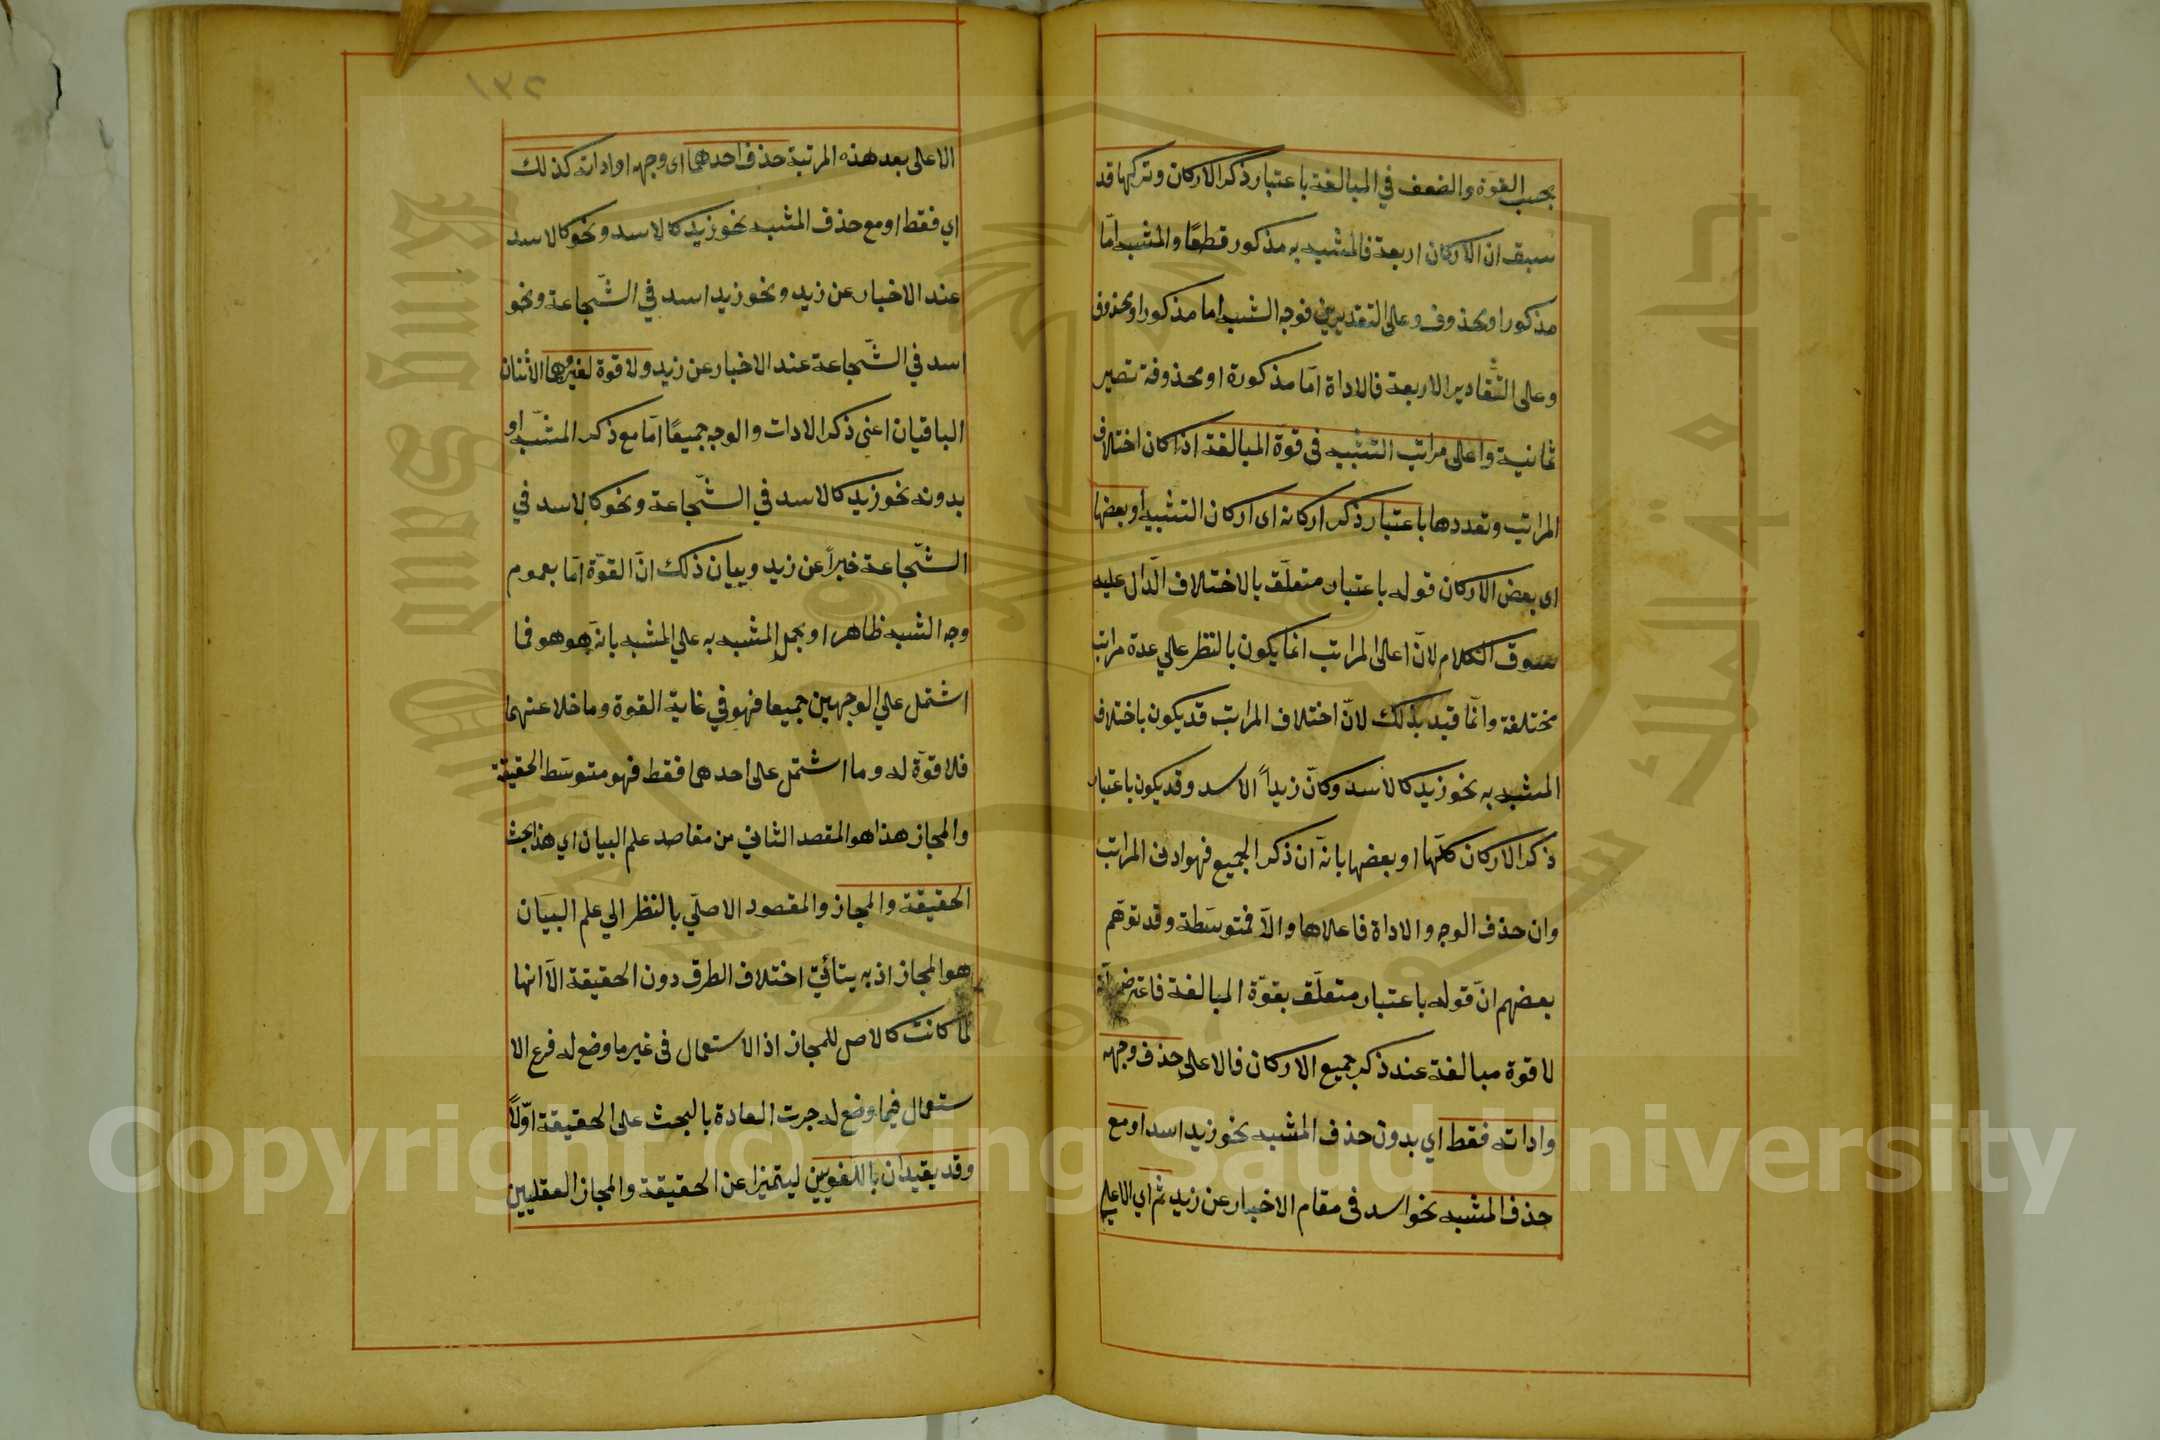 بحسب القوّة والضعف في المبالغة باعتبار ذكر الاركان وتركها قد
سبق ان الاركان اربعة فالمشبه به مذكور قطعًا والمشبه امّا
مذكور او محذوف وعلى التقديرين فوجه الشبه اما مذكور او محذوف
وعلى التقادير الاربعة فالاداة امّا مذكورة او محذوفة تصير
ثمانية واعلى مراتب التشبيه فى قوّة المبالغة اذا كان اختلاف
المراتب وتعددها باعتبار ذكر اركانه اى اركان التشبيه او بعضها
اى بعض الاركان قوله باعتبار متعلّق بالاختلاف الّدال عليه
سوق الكلام لانّ اعلى المراتب انما يكون بالنظر علي عدة مراتب
مختلفة وانّما قيد بذلك لانّ اختلاف المراتب قد يكون باختلاف
المشبه به نحو زيد كالاسد وكانّ زيداً الاسد وقد يكون باعتبار
ذكر الاركان كلّها او بعضها بانّه ان ذكر الجميع فهو ادنى المراتب
وان حذف الوجه والاداة فاعلاها والّا فمتوسّطة وقد توهّم
بعضهم انّ قوله باعتبار متعلّق بقوّة المبالغة فاعترض بانّه
لا قوة مبالغة عند ذكر جميع الاركان فالاعلى حذف وجهه
واداته فقط اي بدون حذف المشبه نحو زيد اسد او مع
حذف المشبه نحو اسد فى مقام الاخبار عن زيد ثم اي الاعلي
١٣٢
الاعلى بعد هذه المرتبة حذف احدهما اى وجهه او اداته كذلك
اي فقط او مع حذف المشبه نحو زيد كالاسد ونحو كالاسد
عند الاخبار عن زيد ونحو زيد اسد في الشّجاعة ونحو
اسد في الشّجاعة عند الاخبار عن زيد ولا قوة لغيرهما الاثنان
الباقيان اعنى ذكر الادات والوجه جميعًا امّا مع ذكر المشبّه او
بدونه نحو زيد كالاسد في الشّجاعة ونحو كالاسد في
الشّجاعة خبراً عن زيد وبيان ذلك انّ القوّة امّا بعموم
وجه الشبه ظاهرا او بحمل المشبه به علي المشبه بانّه هو هو فما
اشتمل علي الوجهين جميعا فهو في غاية القوة وما خلا عنهما
فلا قوّة له وما اشتمل على احدهما فقط فهو متوسّط الحقيقة
والمجاز هذا هو المقصد الثاني من مقاصد علم البيان اي هذا بحث
الحقيقة والمجاز والمقصود الاصلّي بالنظر الي علم البيَان
هو المجاز اذ به يتأتّي اختلاف الطرق دون الحقيقة الّا انها
لما كانت كالاصل للمجاز اذ الاستعمال فى غير ما وضع له فرع الا
ستعمال فيما وضع له جرت العادة بالبحث على الحقيقة اوّلًا
وقد يقيدان باللّغويين ليتميزا عن الحقيقة والمجاز العقليين
Copyright © King Saud University
King Saud University
جامعة الملك سعود
1957